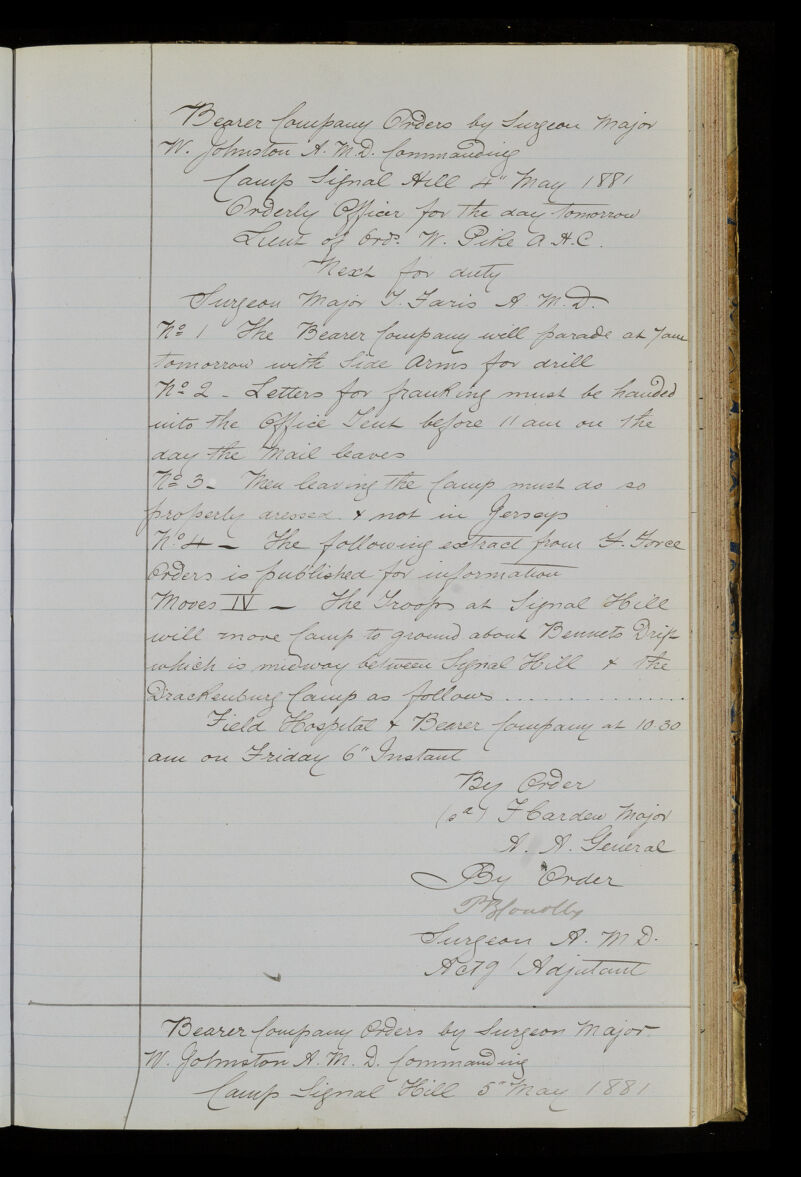 Bearer Company Orders by Surgeon Major
W. Johnston A.M.D. Commanding
Camp Signal Hill 4" May 1881
Orderly Officer for the day tomorrow
Lieut of Ord. W. Pike A.H.C.
Next for duty
Surgeon Major T. Faris A.M.D.
No 1 The Bearer Company will parade at 7am
tomorrow with Side Arms for drill
No 2 - Letters for franking must be handed
into the Office Tent before 11 am on the
day the Mail leaves
No 3 - Men leaving the Camp must do so
properly dressed & not in Jerseys
No 4 - The following extract from F. Force
Orders is published for information
Moves IV - The Troops at Signal Hill
will move Camp to ground about Bennets Drift
which is midway between Signal Hill & the
Drackenburg Camp as follows ................
Field Hospital & Bearer Company at 10.30
am on Friday 6" Instant
By Order
F Carden Major
A. A. General
By Order
Surgeon A.M.D.
Actg Adjutant
Bearer Company Orders by Surgeon Major
W. Johnston A.M.D. Commanding
Camp Signal Hill 5" May 1881